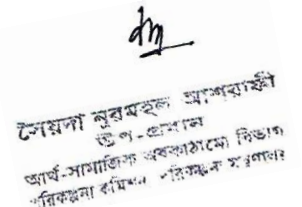 সৈয়দা নুরমহল আশরাফী
উপ-প্রধান
আর্থ-সামাজিক অবকাঠামো বিভাগ
পরিকল্পনা কমিশন, পরিকল্পনা